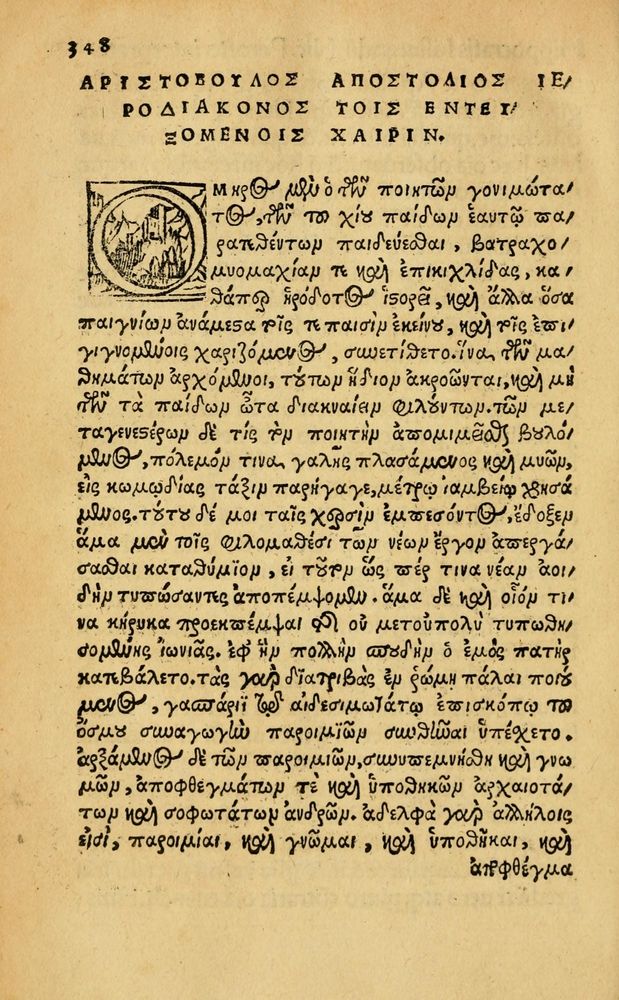 348
ΑΡΙΣΤΟΒΟΥΛΟΣ ΑΠΟΣΤΟΛΙΟΣ ΙΕ/
ΡΟΔΙΑΚΟΝΟΣ ΤΟΙΣ ΕΝΤΕΥ/
ΞΟΜΕΝΟΙΣ ΧΑΙΡΙΝ.
Ομηρος μὲν ὁ τῶν ποιητῶν γονιμώτα/
τος, τῶν τοῦ χίου παίδων ἑαυτῷ πα/
ρατεθέντων παιδεύεσθαι, βατραχο/
μυομαχίαν τε καὶ ἐπικιχλίδας, κα/
θάπερ ἡρόδοτος ἱστορεῖ, καὶ ἄλλα ὅσα
παιγνίων ἀνάμεστα τοῖς τε παισὶν ἐκείνου, καὶ τοῖς ἐπι/
γιγνομένοις χαριζόμενος, συνετίθετο. ἵνα τῶν μα/
θημάτων ἀρχόμενοι, τούτων ἥδιον ἀκροῶνται, καὶ μὴ
τῶν τὰ παίδων ὦτα διακναίειν φιλούντων. τῶν με/
ταγενεστέρων δέ τίς τὸν ποιητὴν ἀπομιμεῖσθαι βουλό/
μενος, πόλεμόν τινα γαλῆς πλασάμενος καὶ μυῶν,
εἰς κωμῳδίας τάξιν παρήγαγε, μέτρῳ ἰαμβείῳ χρησά
μενος. τούτου δέ μοι ταῖς χερσὶν ἐμπεσόντος, ἔδοξεν
ἅμα μὲν τοῖς φιλομαθέσι τῶν νέων ἔργον ἀπεργά/
σασθαι καταθύμιον, εἰ τοῦτον ὥς πέρ τινα νέαν ἀοι/
δὴν τυπώσαντες ἀποπέμψομεν. ἅμα δὲ καὶ οἷόν τι/
να κήρυκα προεκπέμψαι τῆς οὐ μετοὐπολὺ τυπωθη/
σομένης ἰωνιᾶς. ἐφ' ἣν πολλὴν σπουδὴν ὁ ἐμὸς πατὴρ
κατεβάλετο. τὰς γὰρ διατριβὰς ἐν ῥώμῃ πάλαι ποιού
μενος, γασπάρῳ τῷ αἰδεσιμωτάτῳ ἐπισκόπῳ τοῦ
ὄσμου συναγωγὴν παροιμιῶν συνθεῖναι ὑπέχετο.
ἀρξάμενος δὲ τῶν παροιμιῶν, συνυπεμνήσθη καὶ γνω
μῶν, ἀποφθεγμάτων τὲ καὶ ὑποθηκῶν ἀρχαιοτά/
των καὶ σοφωτάτων ἀνδρῶν. ἀδελφὰ γὰρ ἀλλήλοις
εἰσὶ, παροιμίαι, καὶ γνῶμαι, καὶ ὑποθῆκαι, καὶ
ἀποφθέγμα